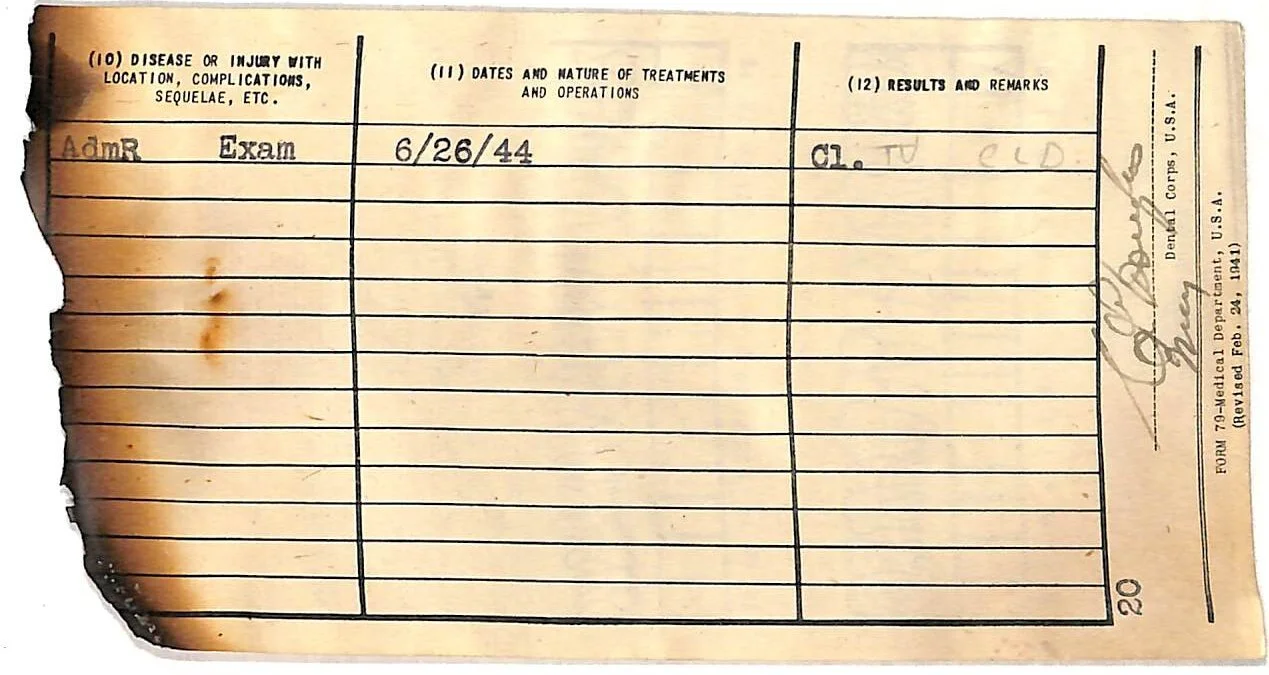 (10) DISEASE OR INJURY WITH
LOCATION, COMPLICATIONS,
SEQUELAE, ETC.
(11) DATES AND NATURE OF TREATMENTS
AND OPERATIONS
(12) RESULTS AND REMARKS
AdmR Exam 6/26/44 Cl. IV CLD.
Dental Corps, U.S.A.
FORM 79-Medical Department, U.S.A.
(Revised Feb. 24, 1941)
20